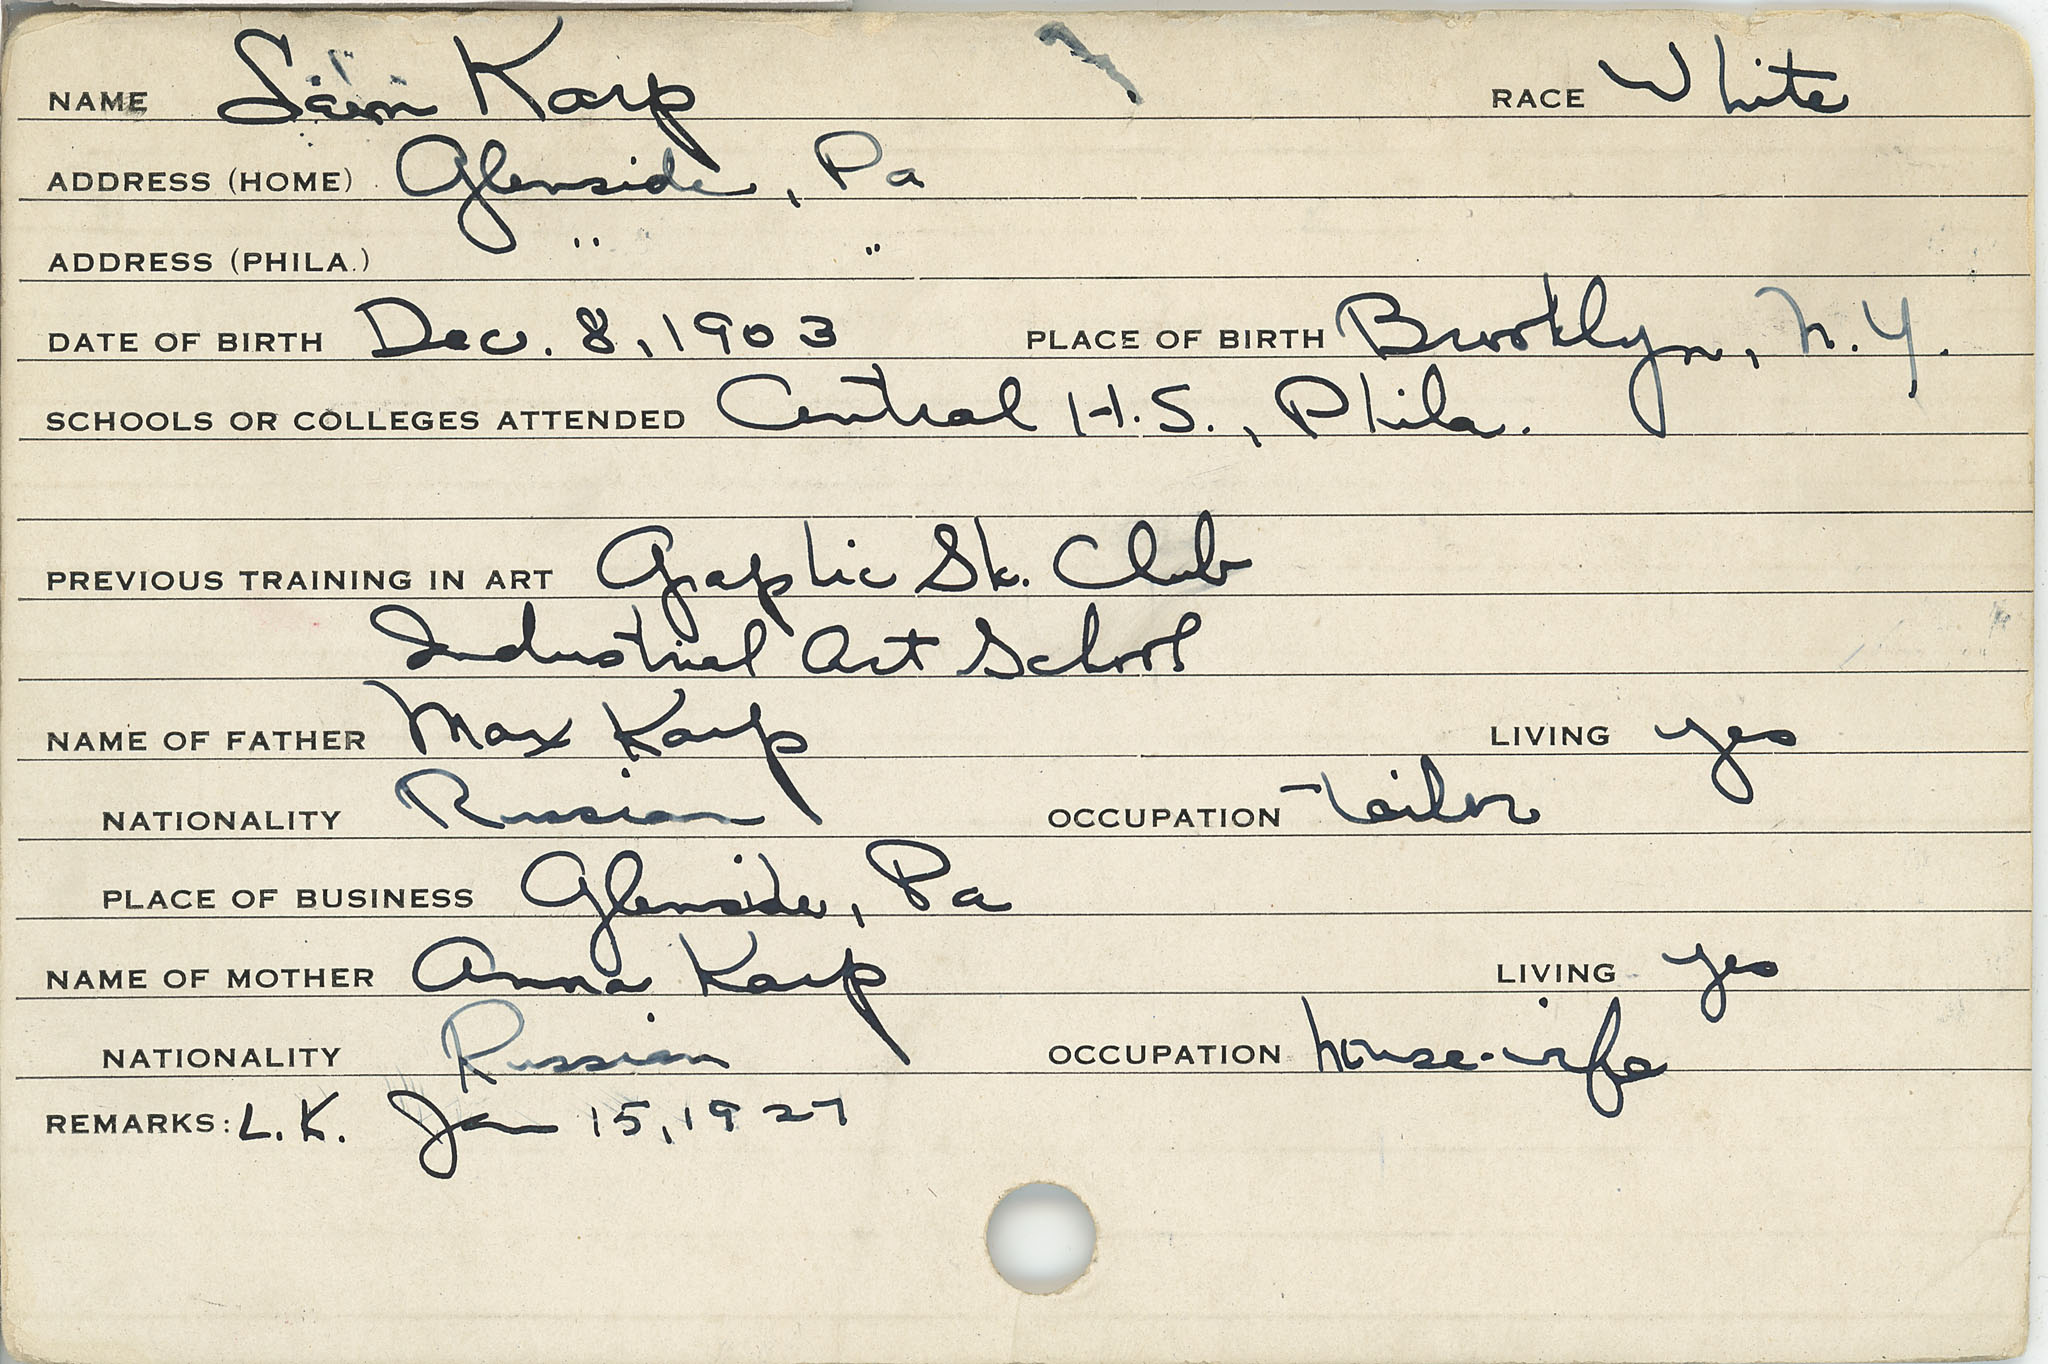 NAME Sam Karp RACE White
ADDRESS (HOME) Glenside, Pa
ADDRESS (PHILA.) " "
DATE OF BIRTH Dec. 8, 1903 PLACE OF BIRTH Brooklyn, N.Y.
SCHOOLS OR COLLEGES ATTENDED Central H.S., Phila.
PREVIOUS TRAINING IN ART Graphic Sk. Club
Industrial Art School
NAME OF FATHER Max Karp LIVING yes
NATIONALITY Russian OCCUPATION tailor
PLACE OF BUSINESS Glenside, Pa
NAME OF MOTHER Anna Karp LIVING yes
NATIONALITY Russian OCCUPATION house-wife
REMARKS: L.K. Jan 15, 1927